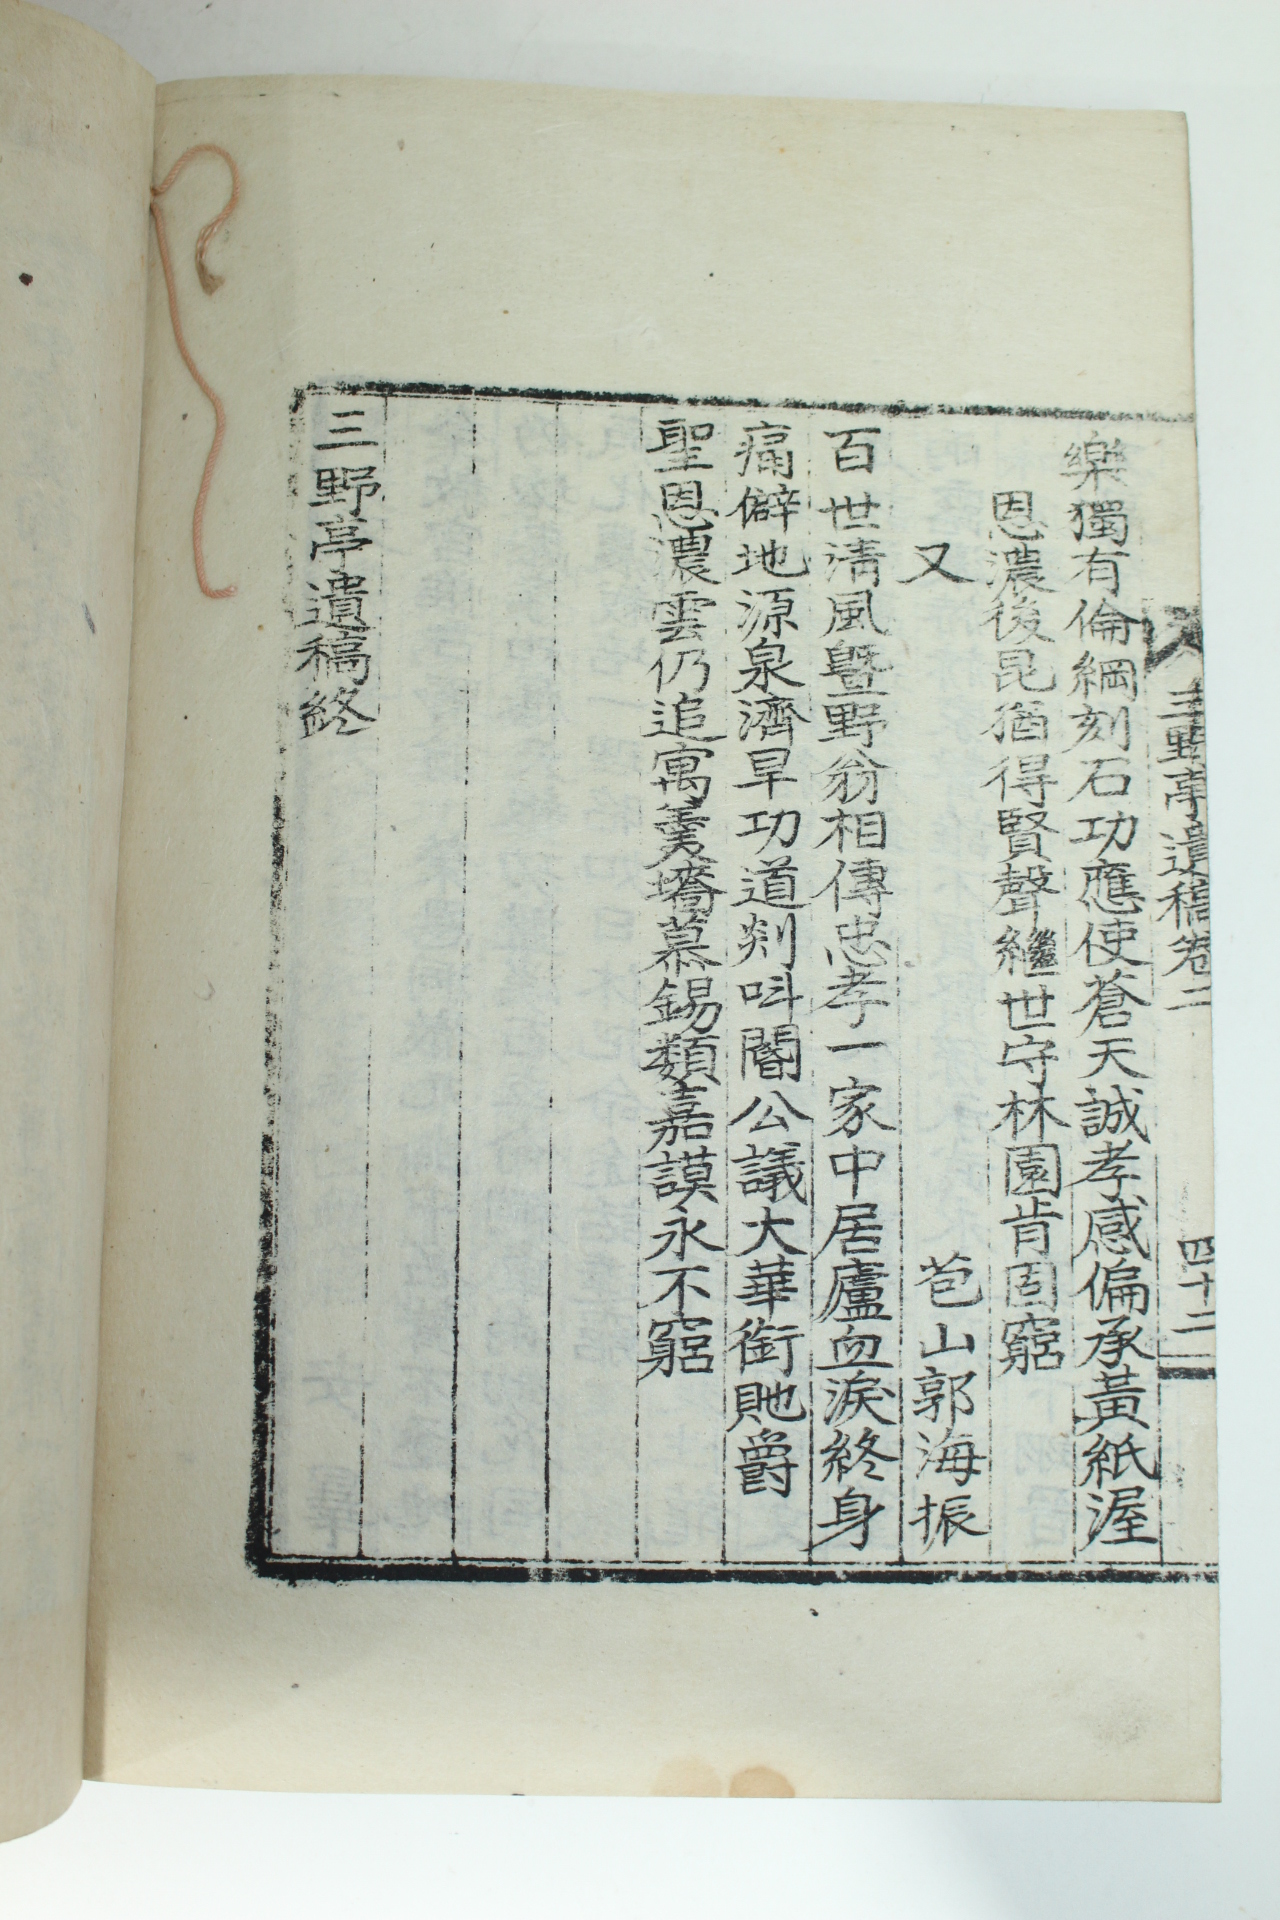 三野亭遺稿卷二 四十二
樂獨有倫綱刻石功應使蒼天誠孝感偏承黃紙渥
恩濃後昆猶得賢聲繼世守林園肯固窮
又 苞山郭海振
百世淸風曁野翁相傳忠孝一家中居廬血淚終身
痛僻地源泉濟旱功道剡呌閽公議大華銜貤爵
聖恩濃雲仍追寓羹墻慕錫類嘉謨永不窮
三野亭遺稿終